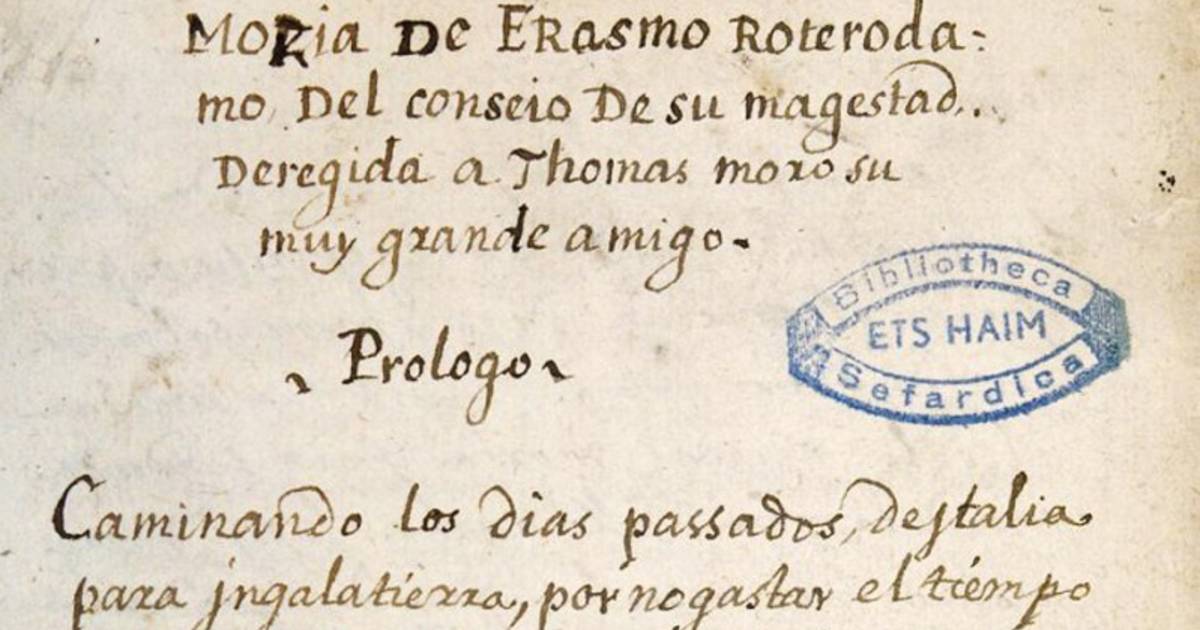 Moria De Erasmo Roteroda-
mo Del conseio De su magestad..
Deregida a Thomas moro su
muy grande amigo.
Prologo
Bibliotheca
ETS HAIM
Sefardica
Caminando los dias passados, de jtalia
para jngalatierra, por no gastar el tiempo